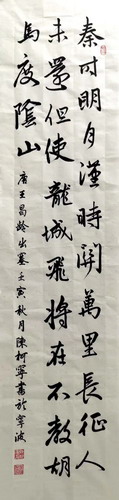 秦时明月漢時関萬里長征人
未還但使龍城飛將在不教胡
馬度陰山
唐王昌龄出塞壬寅秋月陳柯寧書於寧波